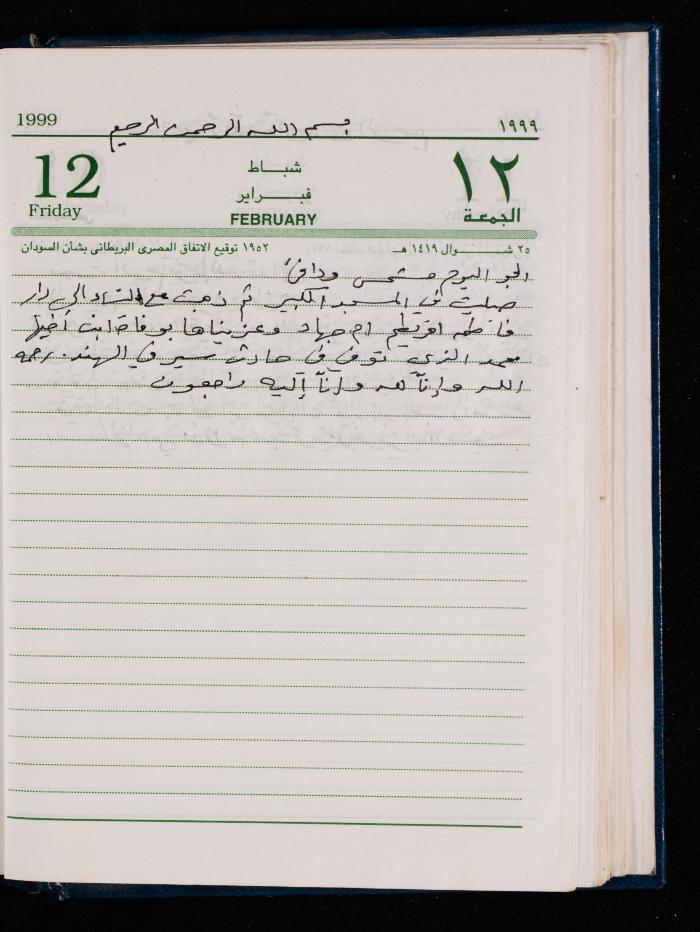 1999 بسم الله الرحمن الرحيم ١٩٩٩
12 شبــاط ١٢
Friday فبرايـر الجمعة
FEBRUARY
٢٥ شـــوال ١٤١٩ هـ ١٩٥٢ توقيع الاتفاق المصرى البريطانى بشأن السودان
الجو اليوم مشمس ودافئ
صليت في المسجد الكبير ثم ذهبت مع النساء إلى دار
فاطمه افريطم ام جهاد وعزيناها بوفاة ابن أخيها
محمد الذي توفى في حادث سير في الهند. رحمه
الله وإنّا لله وإنّا إليه راجعون